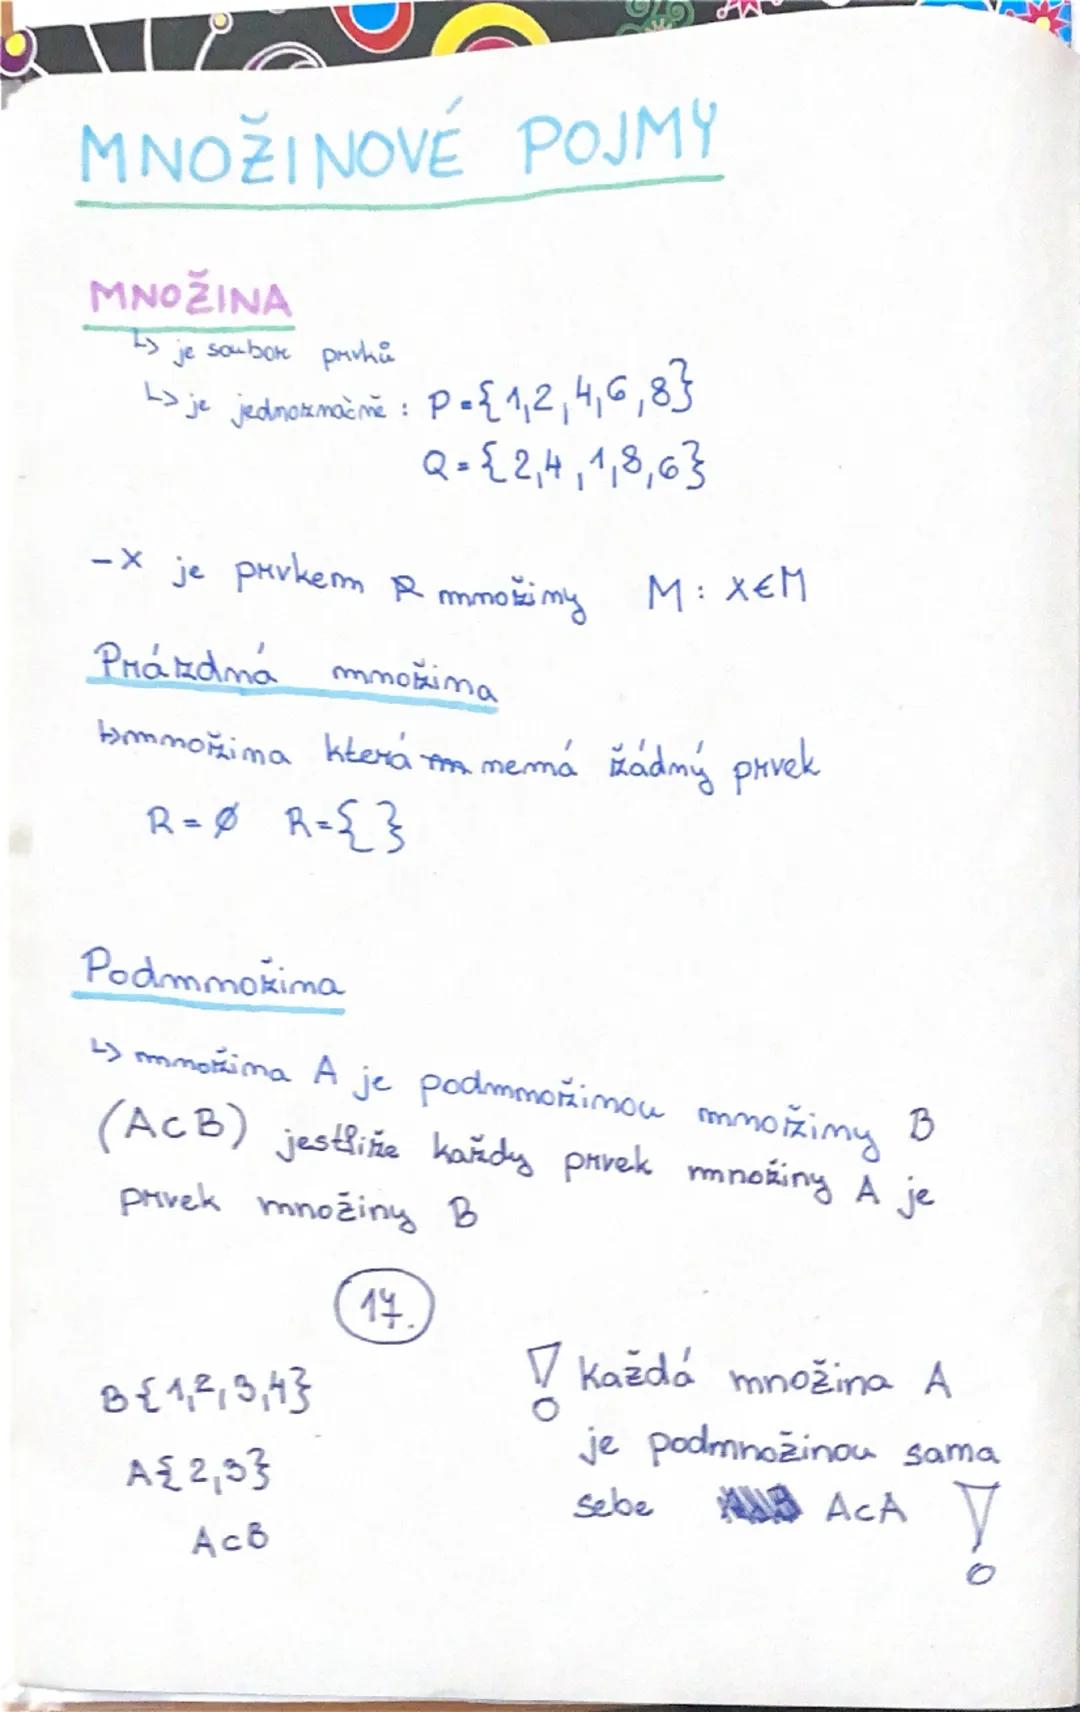 MNOŽINOVÉ POJMY
MNOŽINA
↳ je soubor prvků
↳ je jednoznačně : P = {1,2,4,6,8}
Q = {2,4,1,8,6}
- x je prvkem množiny M : x ∈ M
Prázdná množina
↳ množina která nemá žádný prvek
R = ∅ R = { }
Podmnožina
↳ množina A je podmnožinou množiny B
(A⊂B) jestliže každy prvek množiny A je
prvek množiny B
17.
B{1,2,3,4}
A{2,3}
A⊂B
! každá množina A
je podmnožinou sama
sebe A⊂A !